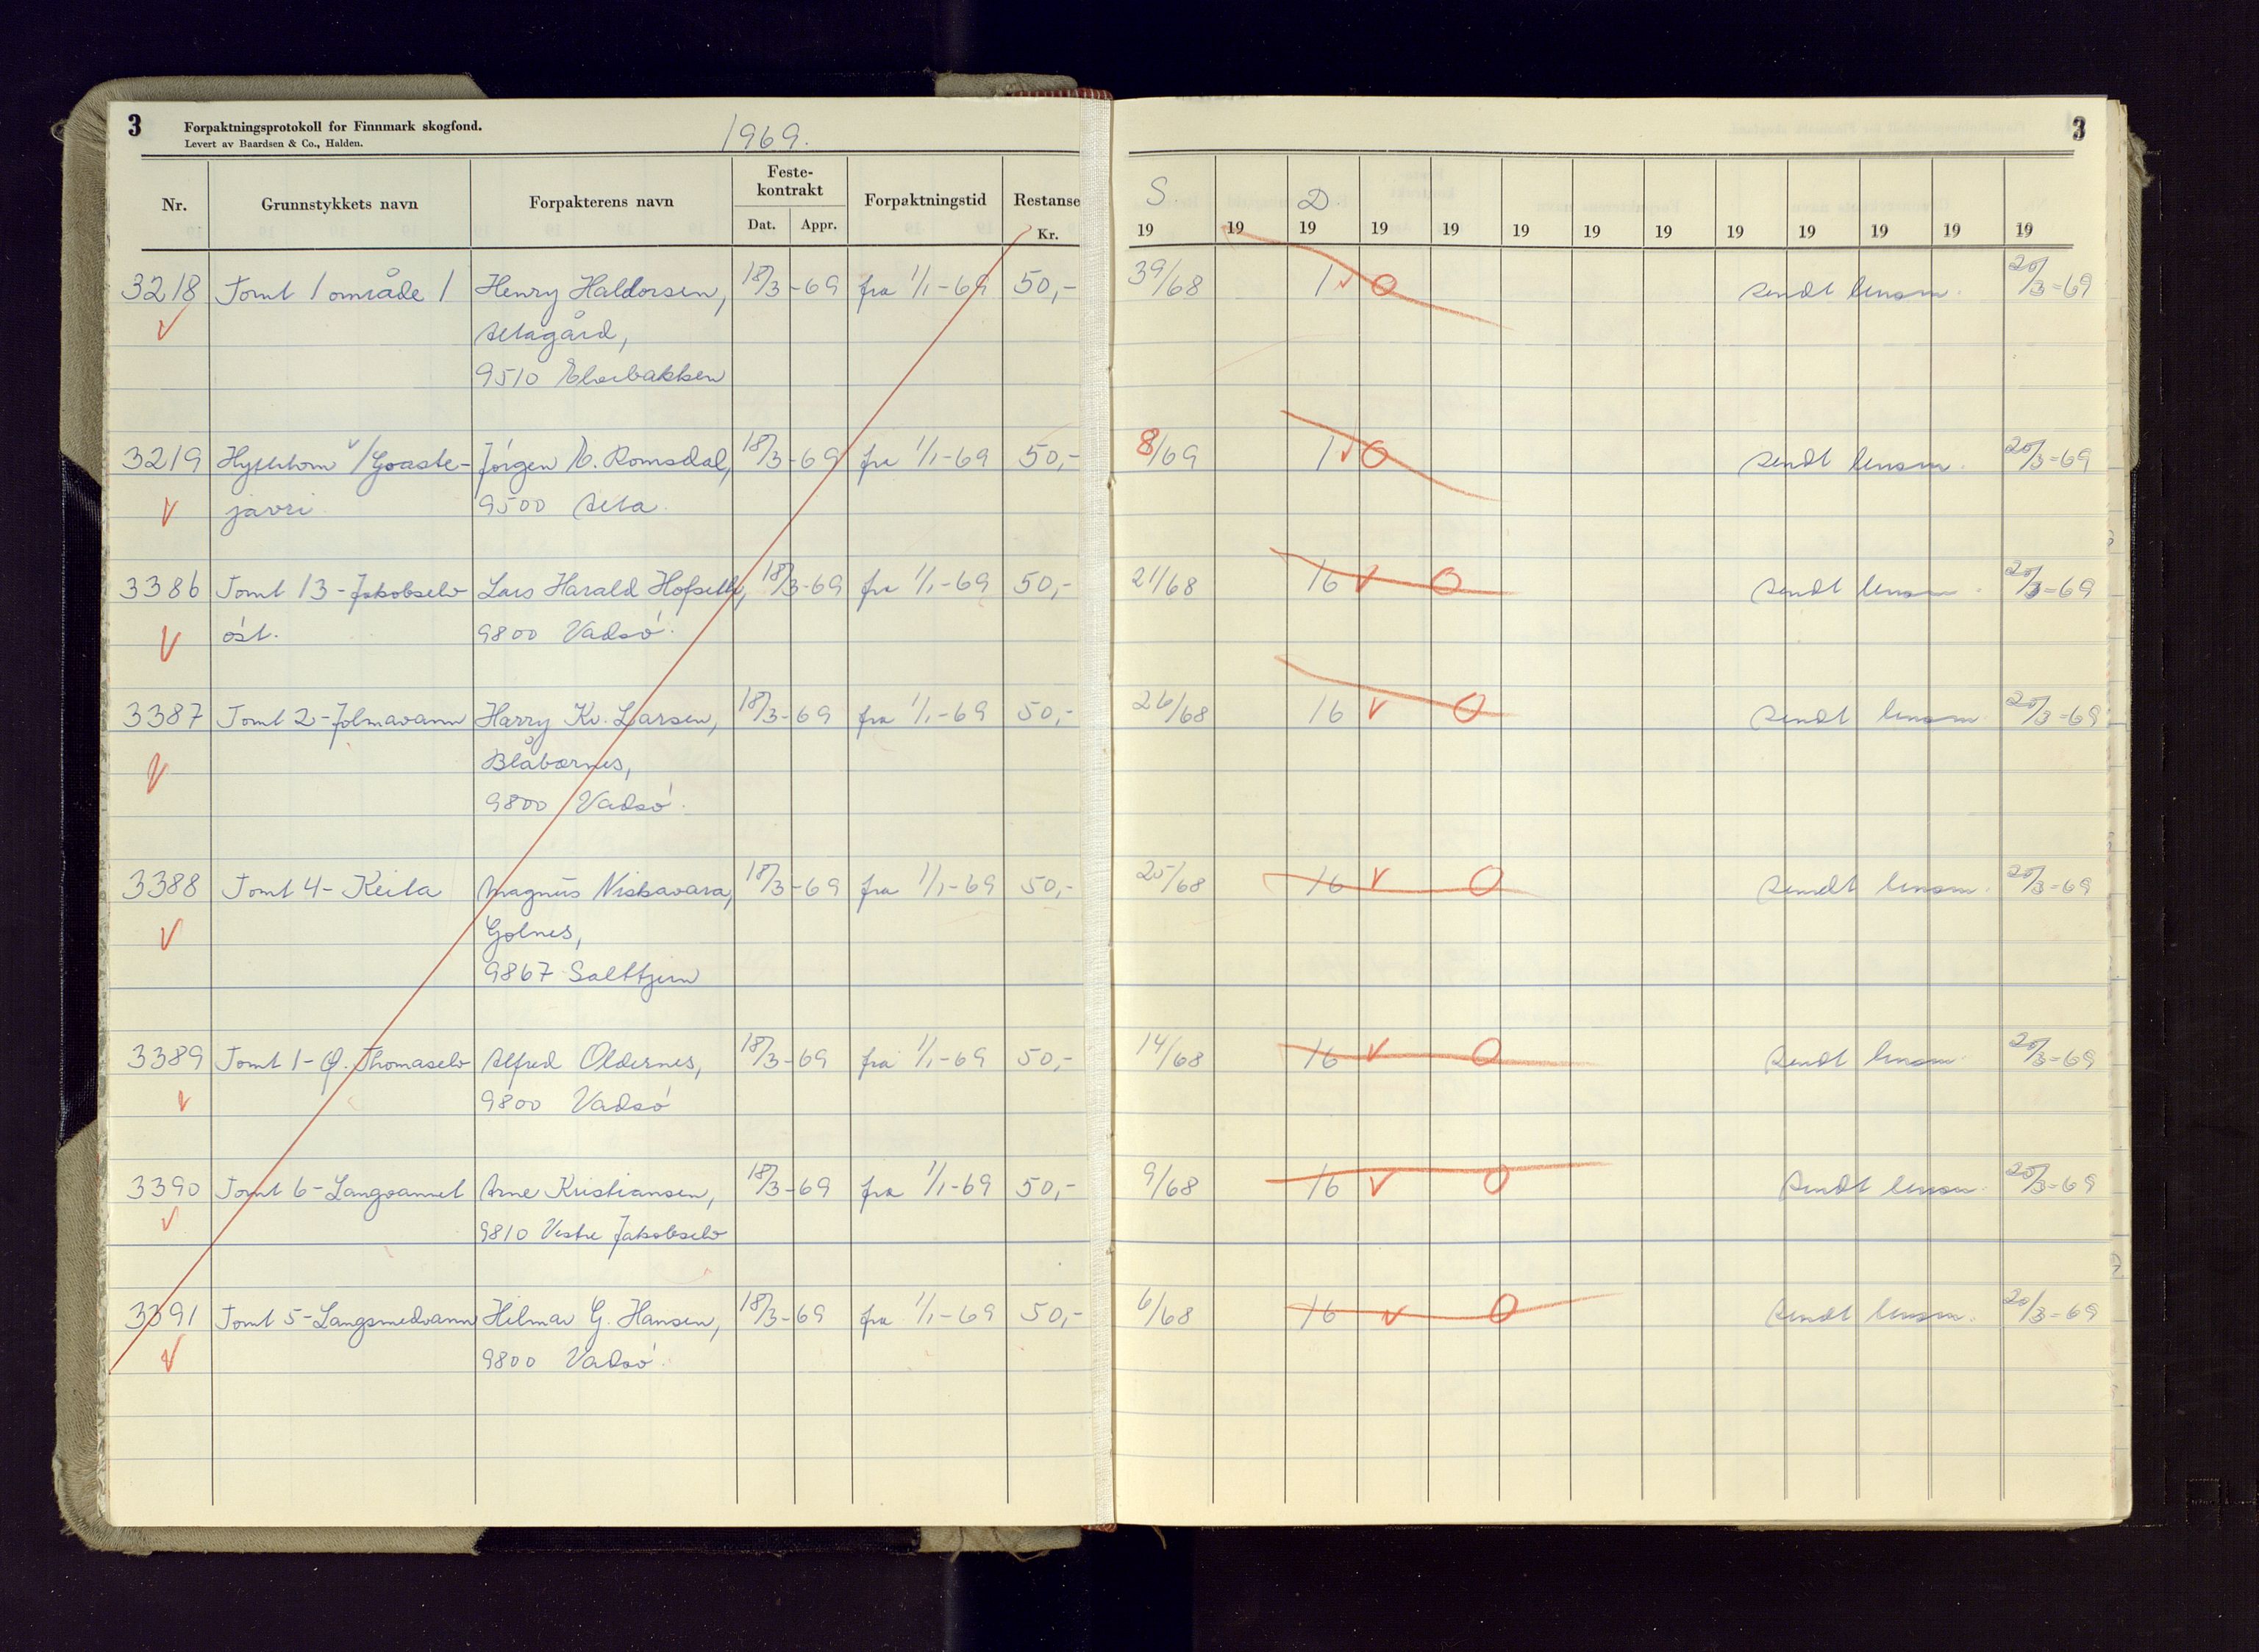 3 Forpaktningsprotokoll for Finnmark skogfond. 1969. 3
Levert av Baardsen & Co., Halden.
Nr. Grunnstykkets navn Forpakterens navn Feste-kontrakt Dat. Appr. Forpaktningstid Restanse Kr. S. 19 19 D. 19 19 19 19 19 19 19 19 19 19 19
3218 Tomt 1 område 1 Henry Haldorsen, 18/3-69 fra 1/1-69 50,- 39/68 1 V O sendt lensm. 20/3-69
V Altagård,
9510 Elvebakken
3219 v/Goaste- Jörgen Romsdal, 18/3-69 fra 1/1-69 50,- 8/69 1 V O sendt lensm. 20/3-69
V javri 9500 Alta.
3386 Tomt 13-Jakobselv Lars Harald 18/3-69 fra 1/1-69 50,- 21/68 16 V O sendt lensm. 20/3-69
V öst. 9800 Vadsö.
3387 Tomt 2-Jolmavann Harry Kr. Larsen, 18/3-69 fra 1/1-69 50,- 26/68 16 V O sendt lensm. 20/3-69
V Blåbærnes,
9800 Vadsö.
3388 Tomt 4-Keila Magnus Niskavara, 18/3-69 fra 1/1-69 50,- 25/68 16 V O sendt lensm. 20/3-69
V Golnes,
9867 Salttjern
3389 Tomt 1-Ø. Thomaselv Alfred Oldernes, 18/3-69 fra 1/1-69 50,- 14/68 16 V O sendt lensm. 20/3-69
V 9800 Vadsö
3390 Tomt 6-Langvannet Arne Kristiansen, 18/3-69 fra 1/1-69 50,- 9/68 16 V O sendt lensm. 20/3-69
V 9810 Vestre Jakobselv
3391 Tomt 5-Langsmedvann Hilmar G. Hansen, 18/3-69 fra 1/1-69 50,- 6/68 16 V O sendt lensm. 20/3-69
V 9800 Vadsö.